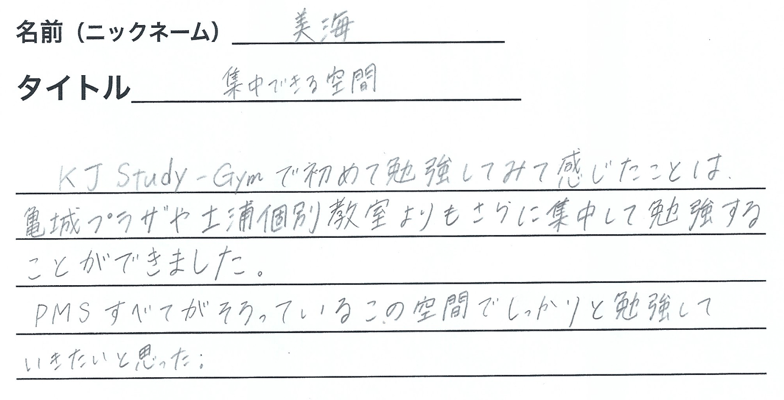 名前（ニックネーム） 美海
タイトル 集中できる空間
KJ Study-Gymで初めて勉強してみて感じたことは、
亀城プラザや土浦個別教室よりもさらに集中して勉強する
ことができました。
PMSすべてがそろっているこの空間でしっかりと勉強して
いきたいと思った。